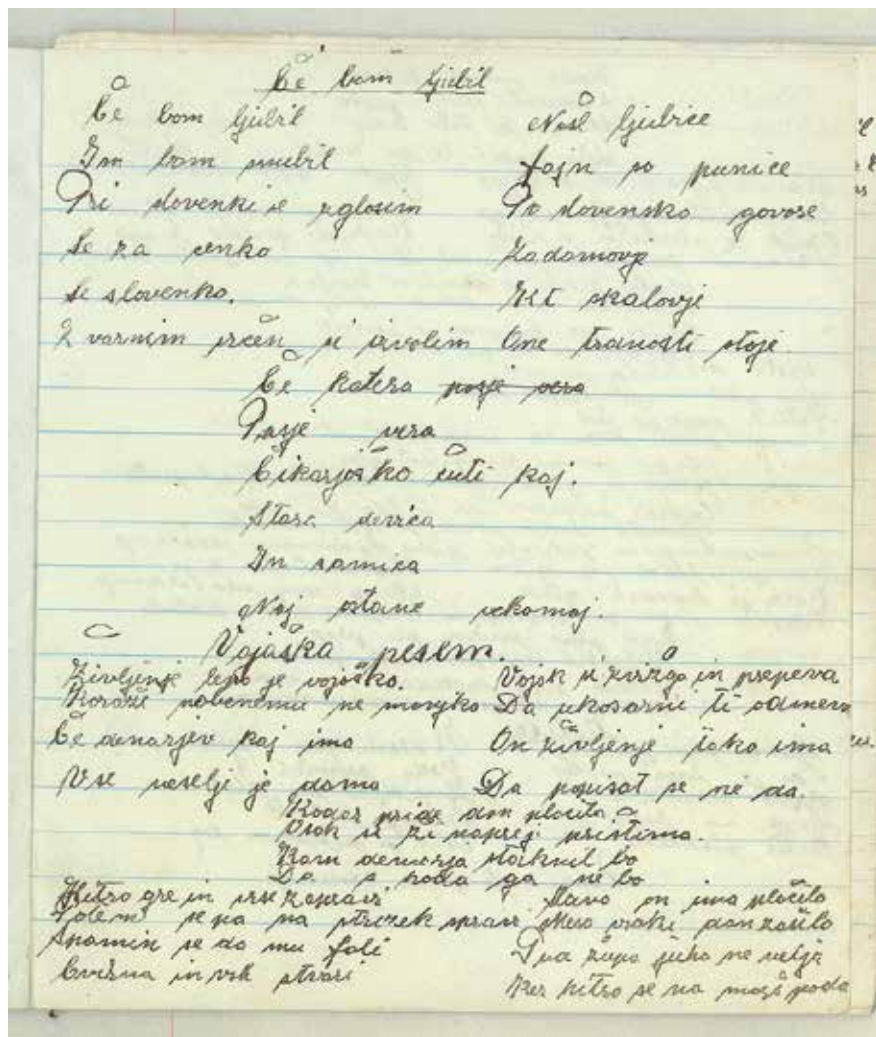 Če bom ljubil
Če bom ljubil
Im bom snubil
Pri slovenki se zglosim
Le za
Le slovenko.
Z varnim srčen si izvolim
Naše ljubice
fajn so punice
Po slovensko govore
Za domovje
Kč skalovje
One trdnosti stoje.
Če katera posje vera
Posje vera
Čikarjaško čuti kaj.
Stara devica
In samica
Naj ostane vekomaj.
Vojaška pesem.
Življenje lepo je vojaško.
Korače nobenemu ne manjko
Če denarjev kaj ima
Vse veselje je doma
Vojak si žvižga in prepeva
Da ukosarni ti odmeva
On življenje tako ima
Da popisat se ne da.
Kadar pride dan plačila
Vsak se že naprej
Kam denarja staknil bo
Da ga ne bo
Hitro gre in vse zapravi
Potem se pa na stric
Spomin se da mu fali
in vseh stvari
Slavo on ima plačilo
Meso vsaki dan
župa juha ne velja
Ker hitro se na